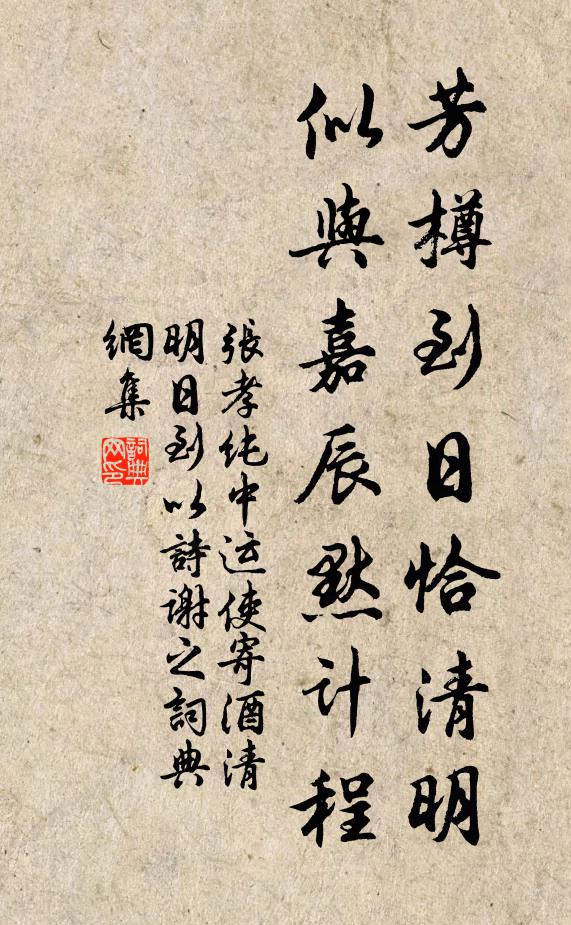 芳樽到日恰清明
似與嘉辰默計程
張孝純中运使寄酒清
明日到以詩谢之詞典
網集
詞典
网印